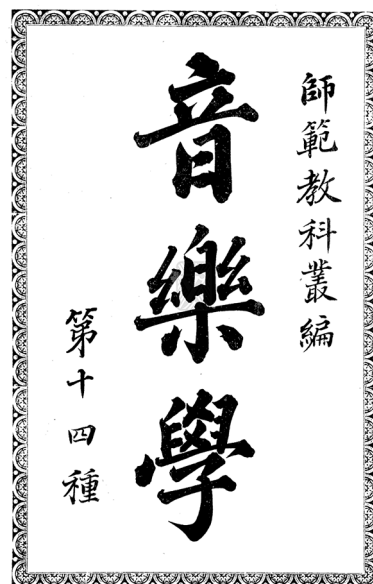 師範教科叢編
音樂學
第十四種